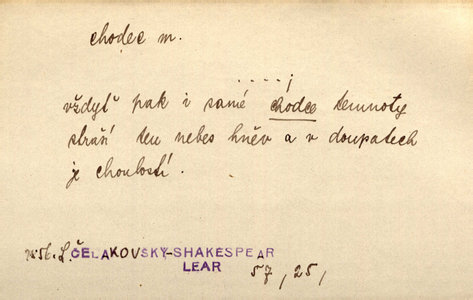 chodec m.
....j
vždyť pak i samé chodce temnoty
straší ten nebes hněv a v doupatech
je choulostí.
ČELAKOVSKÝ-SHAKESPEAR
LEAR 57, 25,